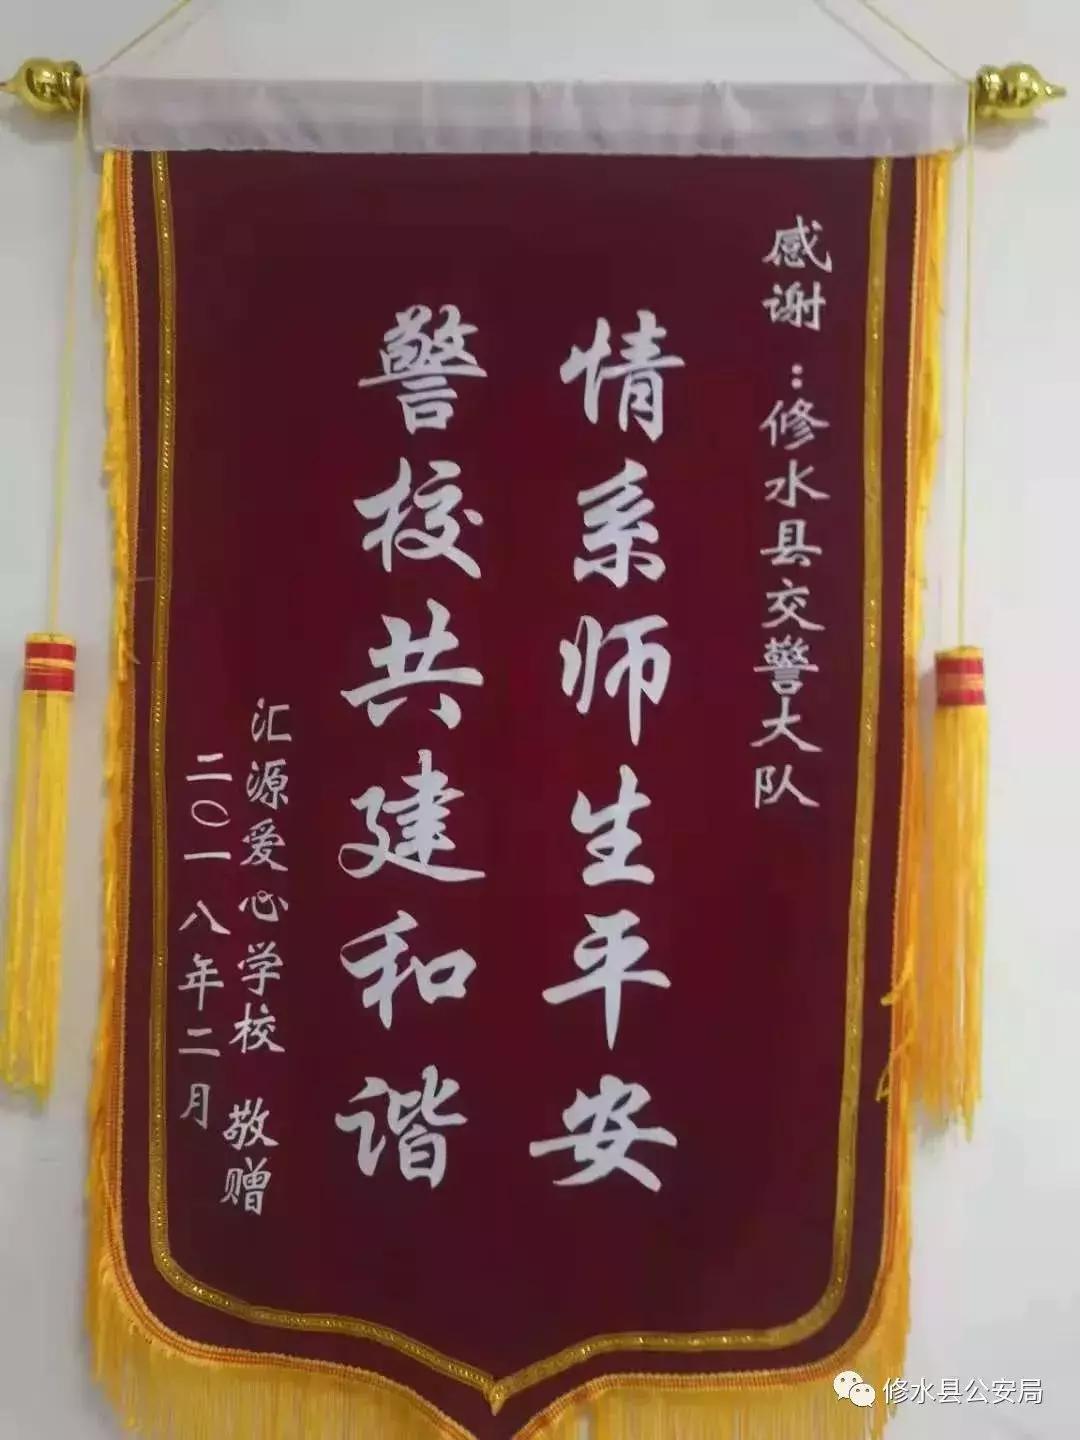 感谢：修水县交警大队
情系师生平安
警校共建和谐
汇源爱心学校 敬赠
二〇一八年二月
修水县公安局